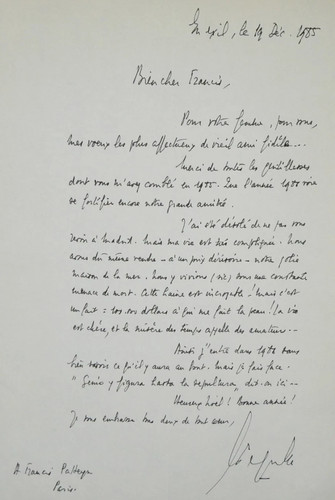 En exil, le 19 Déc. 1985
Bien cher Francis,
Pour votre femme, pour vous,
mes voeux les plus affectueux de vieil ami fidèle...
Merci de toutes les gentillesses
dont vous m'avez comblé en 1985. Que l'année 1986 voie
se fortifier encore notre grande amitié.
J'ai été désolé de ne pas vous
voir à Madrid. Mais ma vie est très compliquée. Nous
avons dû même vendre - à un prix dérisoire - notre jolie
maison de la mer. Nous y vivions (sic) sous une constante
menace de mort. Cette haine est incroyable! Mais c'est
un fait: dollars à qui me fait la peau! (La vie
est chère, et la misère des temps appelle des amateurs...
Ainsi j'entre dans 1986 sans
bien savoir ce qu'il y aura au bout. Mais je fais face.
"Genio y figura hasta la sepultura" dit-on ici --
Heureux Noël! Bonne année!
Je vous embrasse tous deux de tout coeur,
A Francis
Paris.